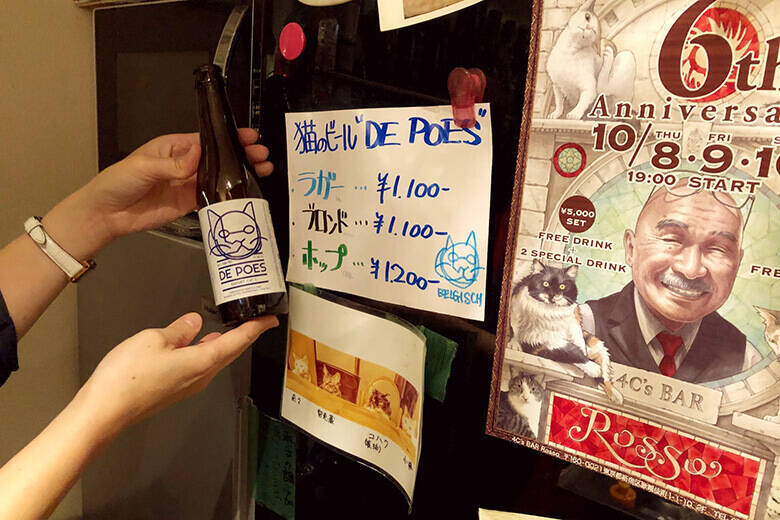 猫のビール "DE POES"
・ラガー … ¥1.100-
・ブロンド … ¥1.100-
・ホップ … ¥1200-
BELGISCH
DE POES
コハク
6th
Anniversa
10/8・9・1
THU FRI
19:00 START
¥5,000
SET
FREE DRINK
+
2 SPECIAL DRINK
FREE
4C's BAR
Rosso
4C's BAR Rosso